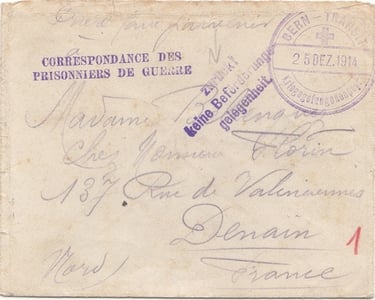 Prière faire parvenir
CORRESPONDANCE DES
PRISONNIERS DE GUERRE
zurück!
keine Beförderungs-
gelegenheit.
BERN-TRANSIT
25 DEZ. 1914
Madame
Chez Monsieur Florin
137 Rue de Valenciennes
Denain
Nord)
France
1